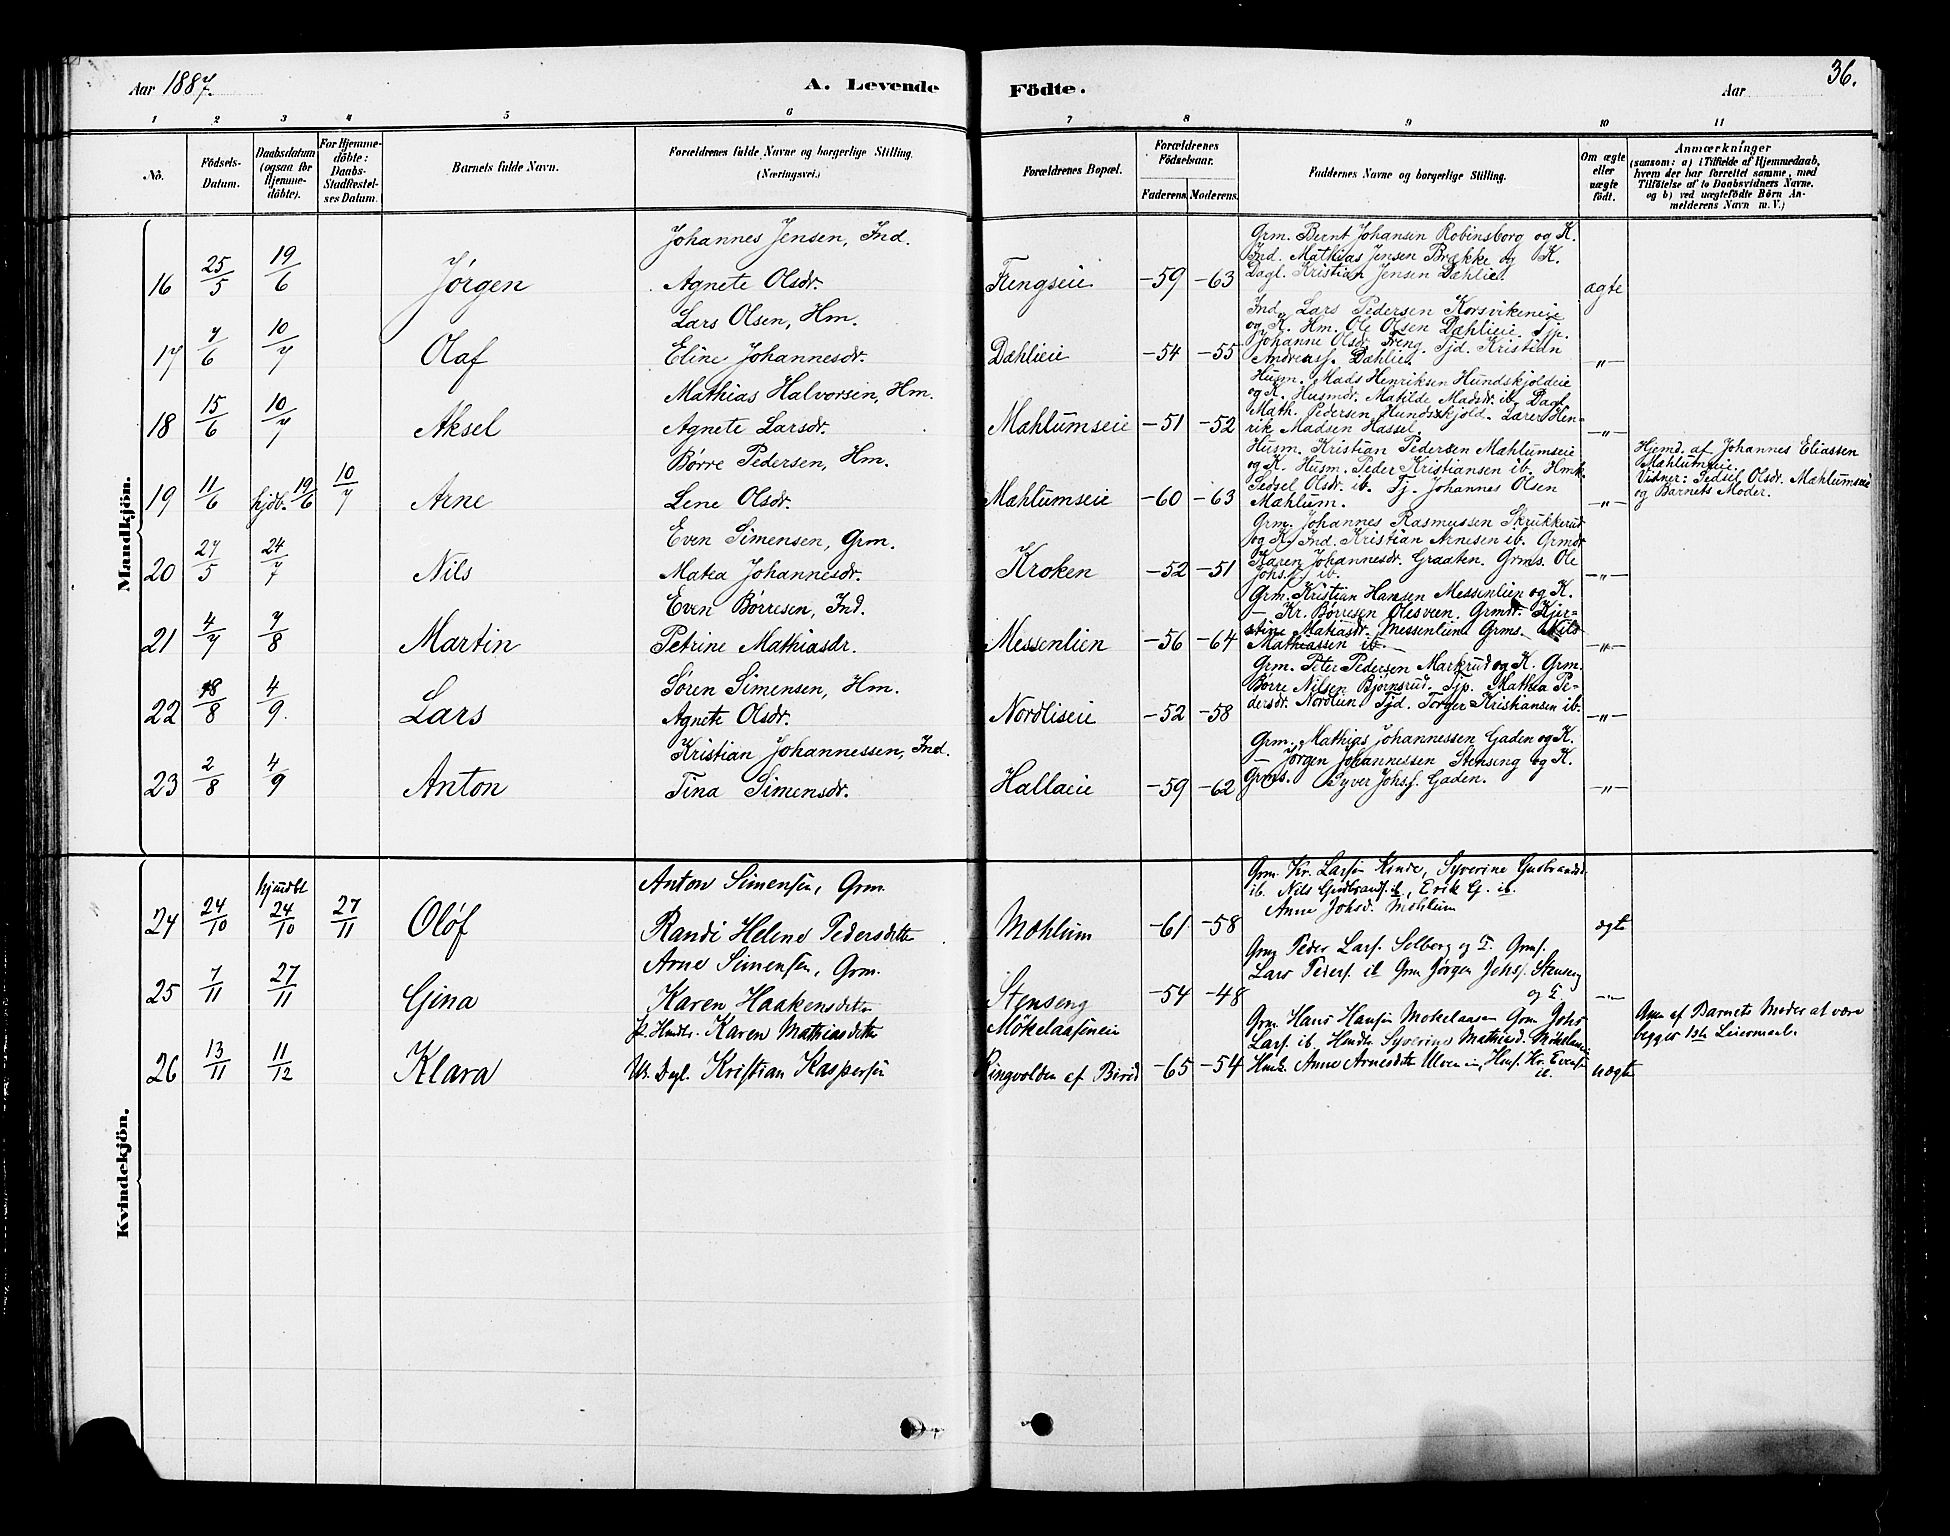 Aar 1887. A. Levende Födte. Aar 36.
1 2 3 4 5 6 7 8 9 10 11
No. Födsels-Datum. Daabsdatum (ogsaa for Hjemmedöbte). For Hjemmedöbte: Daabs-Stadfæstelses Datum. Barnets fulde Navn. Forældrenes fulde Navne og borgerlige Stilling. (Næringsvei.) Forældrenes Bopæl. Forældrenes Födselsaar. Faderens. Moderens. Faddernes Navne og borgerlige Stilling. Om ægte eller uægte födt. Anmærkninger (saasom: a) i Tilfælde af Hjemmedaab, hvem der har forrettet samme, med Tilföielse af to Daabsvidners Navne, og b) ved uægtefödte Börn Anmelderens Navn m. V.)
Mandkjön.
Johannes Jensen, Ind.
16 25/5 19/6 Jørgen Agnete Olsdr. Frengseie -59 -63 ægte
Grm. Bernt Johansen Robinsborg og K.
Ind. Mathias Jensen Brække og K.
Dagl. Kristian Jensen Dæhlie.
Lars Olsen, Hm.
17 7/6 10/7 Olaf Eline Johannesdr. Dæhlieie -54 -55 -"-
Ind. Lars Pedersen Korsvikeneie
og K. Hm. Ole Olsen Dæhlieie. Tjp.
Johanne Olsdr. Freng. Tjd. Kristian
Andreasf. Dæhlie.
Mathias Halvorsen, Hm.
18 15/6 10/7 Aksel Agnete Larsdr. Mæhlumseie -51 -52 -"-
Husm. Mads Henriksen Hundskjoldeie
og K. Husmdr. Matilde Madsdr. ib. Dagl.
Math. Pedersen Hundskjold. Lærer Hen-
rik Madsen Hassel.
Børre Pedersen, Hm.
19 11/6 hjdb. 19/6 10/7 Arne Lene Olsdr. Mæhlumseie -60 -63 -"-
Husm. Kristian Pedersen Mæhlumseie
og K. Husm. Peder Kristiansen ib. Hmk.
Sedsel Olsdr. ib. Tj. Johannes Olsen
Mæhlum.
Hjemd. af Johannes Eliassen
Mæhlumseie.
Vidner: Sedsel Olsdr. Mæhlumseie
og Barnets Moder.
Even Simensen, Grm.
20 27/5 24/7 Nils Matea Johannesdr. Kroken -52 -51 -"-
Grm. Johannes Rasmussen Skrukkerud
og K. Ind. Kristian Arnesen ib. Grmdr.
Karen Johannesdr. Graaten. Grms. Ole
Johsf. ib.
Even Børresen, Ind.
21 4/7 7/8 Martin Petrine Mathiasdr. Messenlien -56 -64 -"-
Grm. Kristian Hansen Messenlien og K.
— Kr. Børresen Olesveen. Grmdr. Kjer-
stine Matiasdr. Messenlien Grms. Nils
Mathiassen ib.
Søren Simensen, Hm.
22 8/8 4/9. Lars Agnete Olsdr. Nordliseie -52 -58 -"-
Grm. Peter Pedersen Markrud og K. Grm.
Børre Nilsen Bjørnsrud. Tjp. Mathea Pe-
dersdr. Nordlien Tjd. Torger Kristiansen ib.
Kristian Johannessen, Ind.
23 2/8 4/9 Anton Tina Simensdr. Hallaeie -59 -62 -"-
Grm. Mathias Johannessen Gaden og K.
— Jørgen Johannessen Stenseng og K.
Grms. Syver Johsf. Gaden.
Kvindekjön.
Anton Simensen, Grm.
24 24/10 hjmdbt 24/10 27/11 Oløf Randi Helene Pedersdatter Mohlum -61 -58 ægte
Grm Kr. Larsen Kinde, Syverine Gudbrandsd.
ib. Nils Gudbrandsf. ib, Erik G. ib.
Anne Johsd. Mohlum
Arne Simensen, Grm.
25 7/11 27/11 Gina Karen Haakensdatter Stenseng -54 -48 -"-
Grm Peder Larsf. Solberg og Grmf.
Lars Pedersf. ib Grm Jørgen Johsf. Stenseng
Karen Mathiasdatter Møkelaaseneie
26 13/11 11/12 Klara Kristian Kaspersen Ringvolden af Birid -65 -54 uægte
Grm Hans Hansen Mokelaasen Grm Johs
Larsf. ib. Syverine Mathiasd.
Anne Arnesdatter Ulven
Anm. af Barnets Moder at være
begges 1ste Leiermaal.